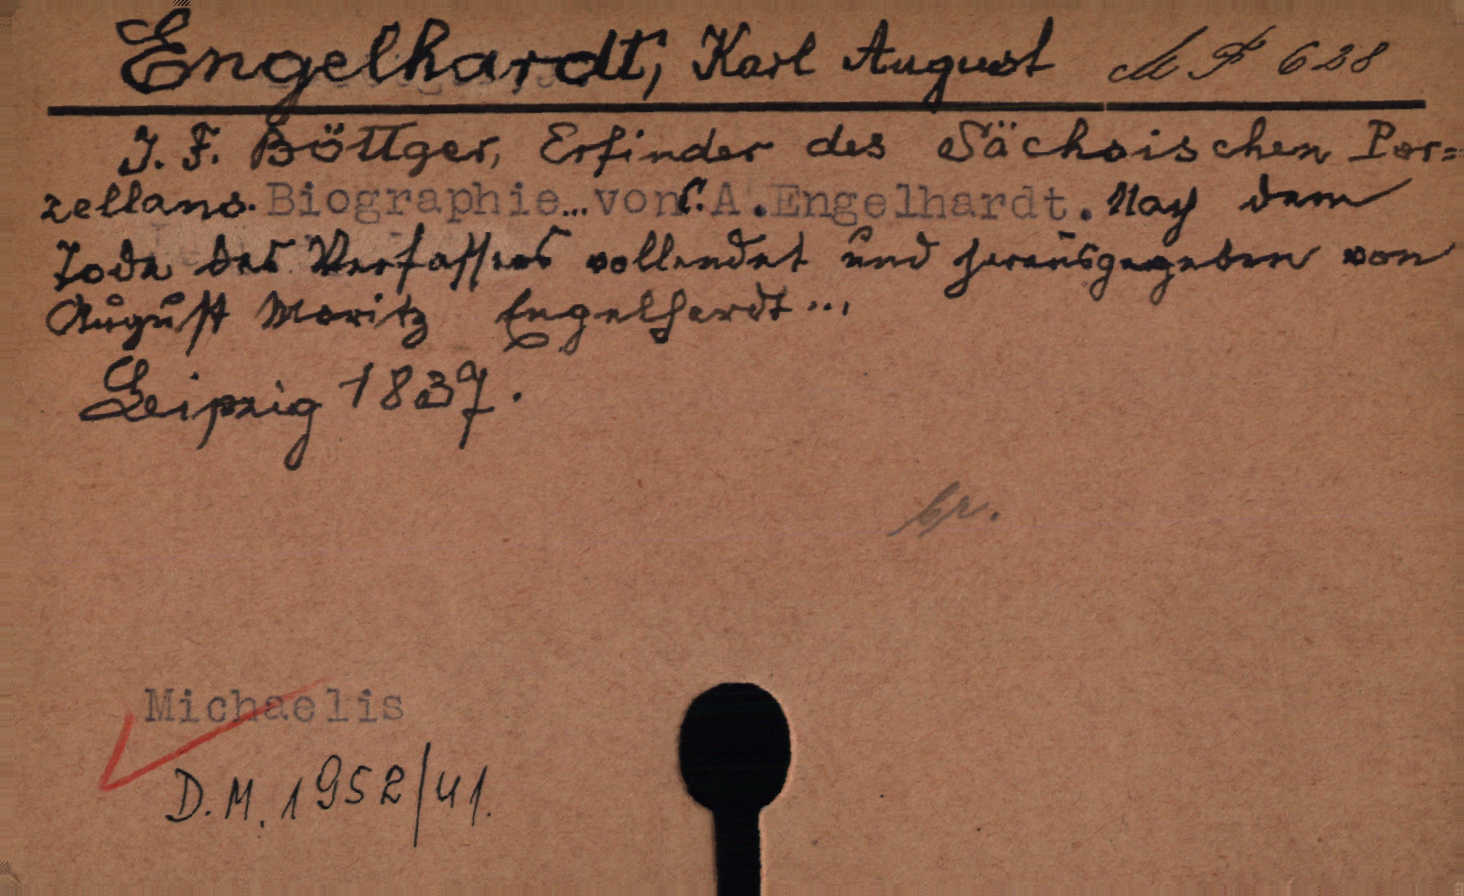 Engelhardt, Karl August M F 628
J. F. Böttger, Erfinder des Sächsischen Por=
zellans. Biographie... von C. A. Engelhardt. Nach dem
Tode des Verfassers vollendet und herausgegeben von
August Moritz Engelhardt...,
Leipzig 1837.
br.
Michaelis
D. M. 1952/41.